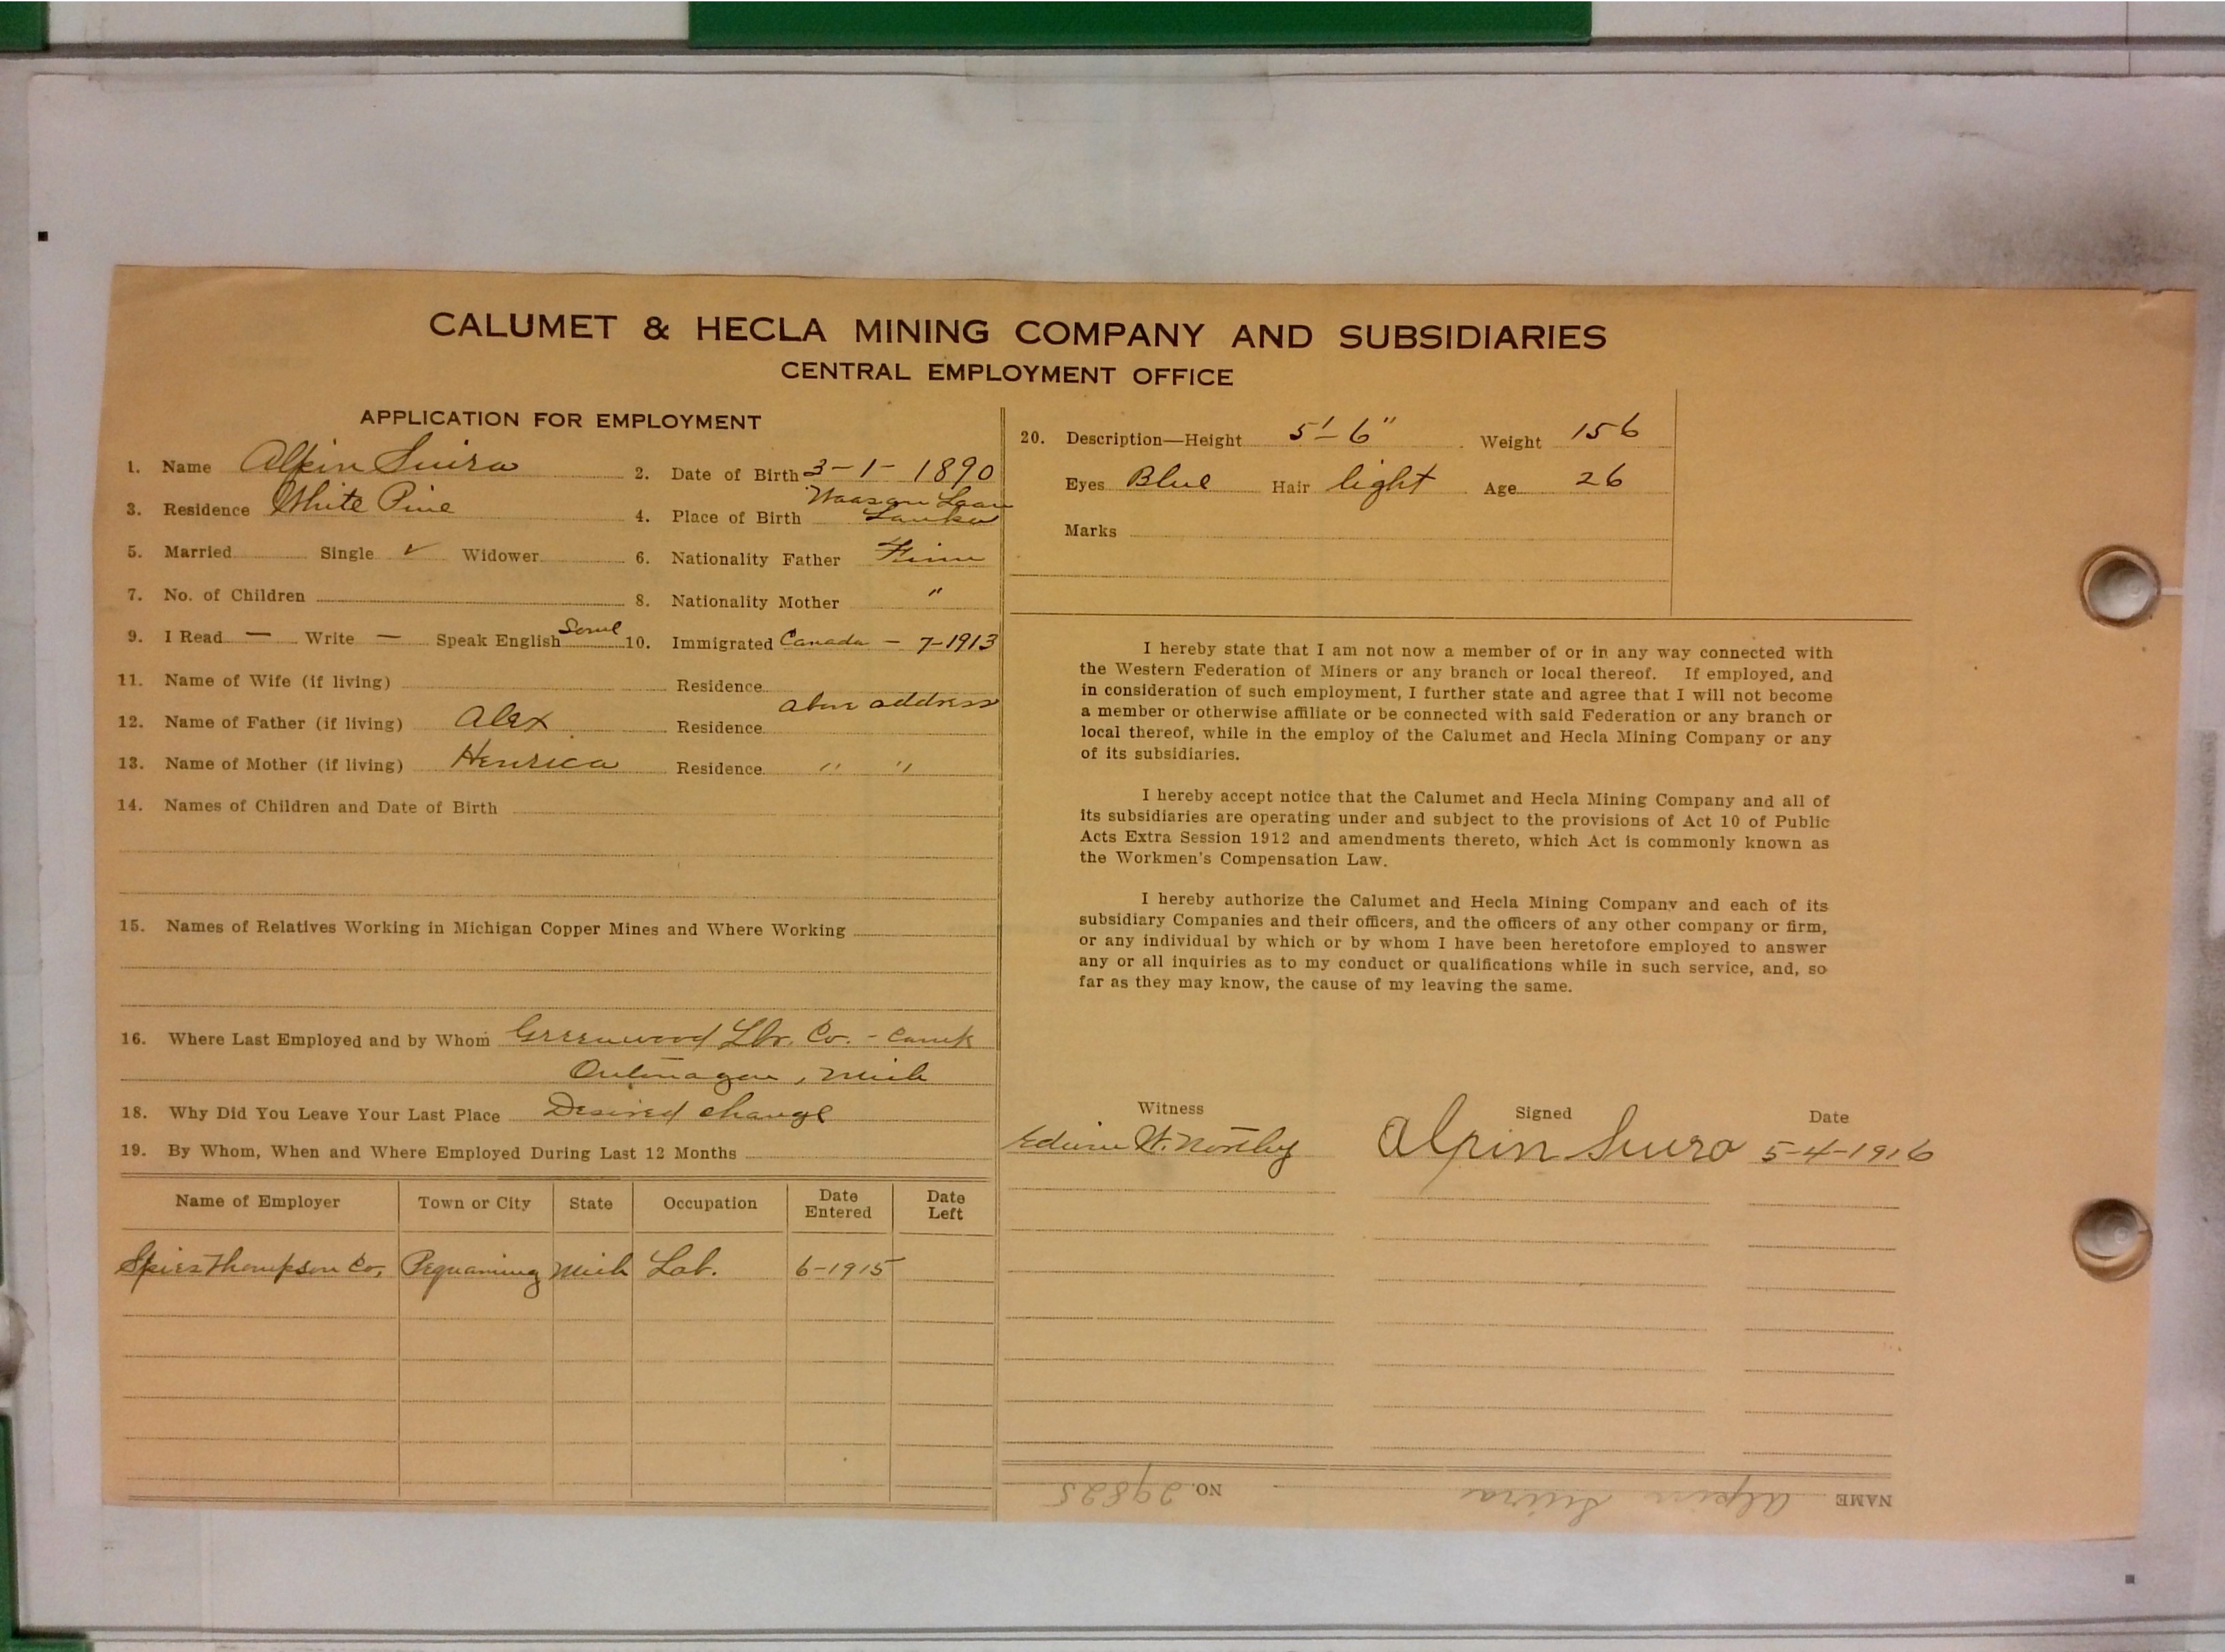 CALUMET & HECLA MINING COMPANY AND SUBSIDIARIES
CENTRAL EMPLOYMENT OFFICE
APPLICATION FOR EMPLOYMENT
1. Name Alpin Suira 2. Date of Birth 3-1-1890
3. Residence White Pine 4. Place of Birth Waasan Laani
5. Married Single ✓ Widower 6. Nationality Father Finn
7. No. of Children 8. Nationality Mother "
9. I Read — Write — Speak English Some 10. Immigrated Canada - 7-1913
11. Name of Wife (if living) Residence
12. Name of Father (if living) Alex Residence above address
13. Name of Mother (if living) Henrica Residence " "
14. Names of Children and Date of Birth
15. Names of Relatives Working in Michigan Copper Mines and Where Working
16. Where Last Employed and by Whom Greenwood Lbr. Co. -
Ontonagon, Mich
18. Why Did You Leave Your Last Place Desired change
19. By Whom, When and Where Employed During Last 12 Months
Name of Employer Town or City State Occupation Date Entered Date Left
Spies Thompson Co. Pequaming Mich Lab. 6-1915
20. Description—Height 5'-6" Weight 156
Eyes Blue Hair light Age 26
Marks
I hereby state that I am not now a member of or in any way connected with
the Western Federation of Miners or any branch or local thereof. If employed, and
in consideration of such employment, I further state and agree that I will not become
a member or otherwise affiliate or be connected with said Federation or any branch or
local thereof, while in the employ of the Calumet and Hecla Mining Company or any
of its subsidiaries.
I hereby accept notice that the Calumet and Hecla Mining Company and all of
its subsidiaries are operating under and subject to the provisions of Act 10 of Public
Acts Extra Session 1912 and amendments thereto, which Act is commonly known as
the Workmen's Compensation Law.
I hereby authorize the Calumet and Hecla Mining Company and each of its
subsidiary Companies and their officers, and the officers of any other company or firm,
or any individual by which or by whom I have been heretofore employed to answer
any or all inquiries as to my conduct or qualifications while in such service, and, so
far as they may know, the cause of my leaving the same.
Witness Signed Date
Edwin W. Northey Alpin Suiro 5-4-1916
NAME Alpin Suira NO. 29825